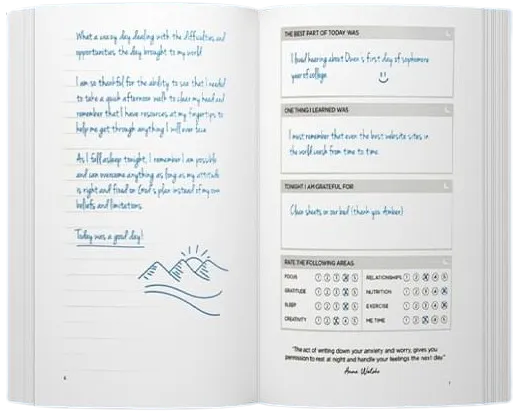 What a crazy day dealing with the difficulties and
opportunities the day brought to my world
I am so thankful for the ability to see that I needed
to take a quick afternoon walk to clear my head and
remember that I have resources at my fingertips to
help me get through anything I will ever face
As I fall asleep tonight, I remember I am possible
and can overcome anything as long as my attitude
is right and fixed on God's plan instead of my own
beliefs and limitations.
Today was a good day!
6
THE BEST PART OF TODAY WAS
I loved hearing about Owen's first day of sophomore
year of college
ONE THING I LEARNED WAS
I must remember that even the best website sites in
the world crash from time to time
TONIGHT I AM GRATEFUL FOR
Clean sheets on our bed (thank you Amber)
RATE THE FOLLOWING AREAS
FOCUS 1 2 3 4 5 RELATIONSHIPS 1 2 3 4 5
GRATITUDE 1 2 3 4 5 NUTRITION 1 2 3 4 5
SLEEP 1 2 3 4 5 EXERCISE 1 2 3 4 5
CREATIVITY 1 2 3 4 5 ME TIME 1 2 3 4 5
"The act of writing down your anxiety and worry, gives you
permission to rest at night and handle your feelings the next day"
Anna
7